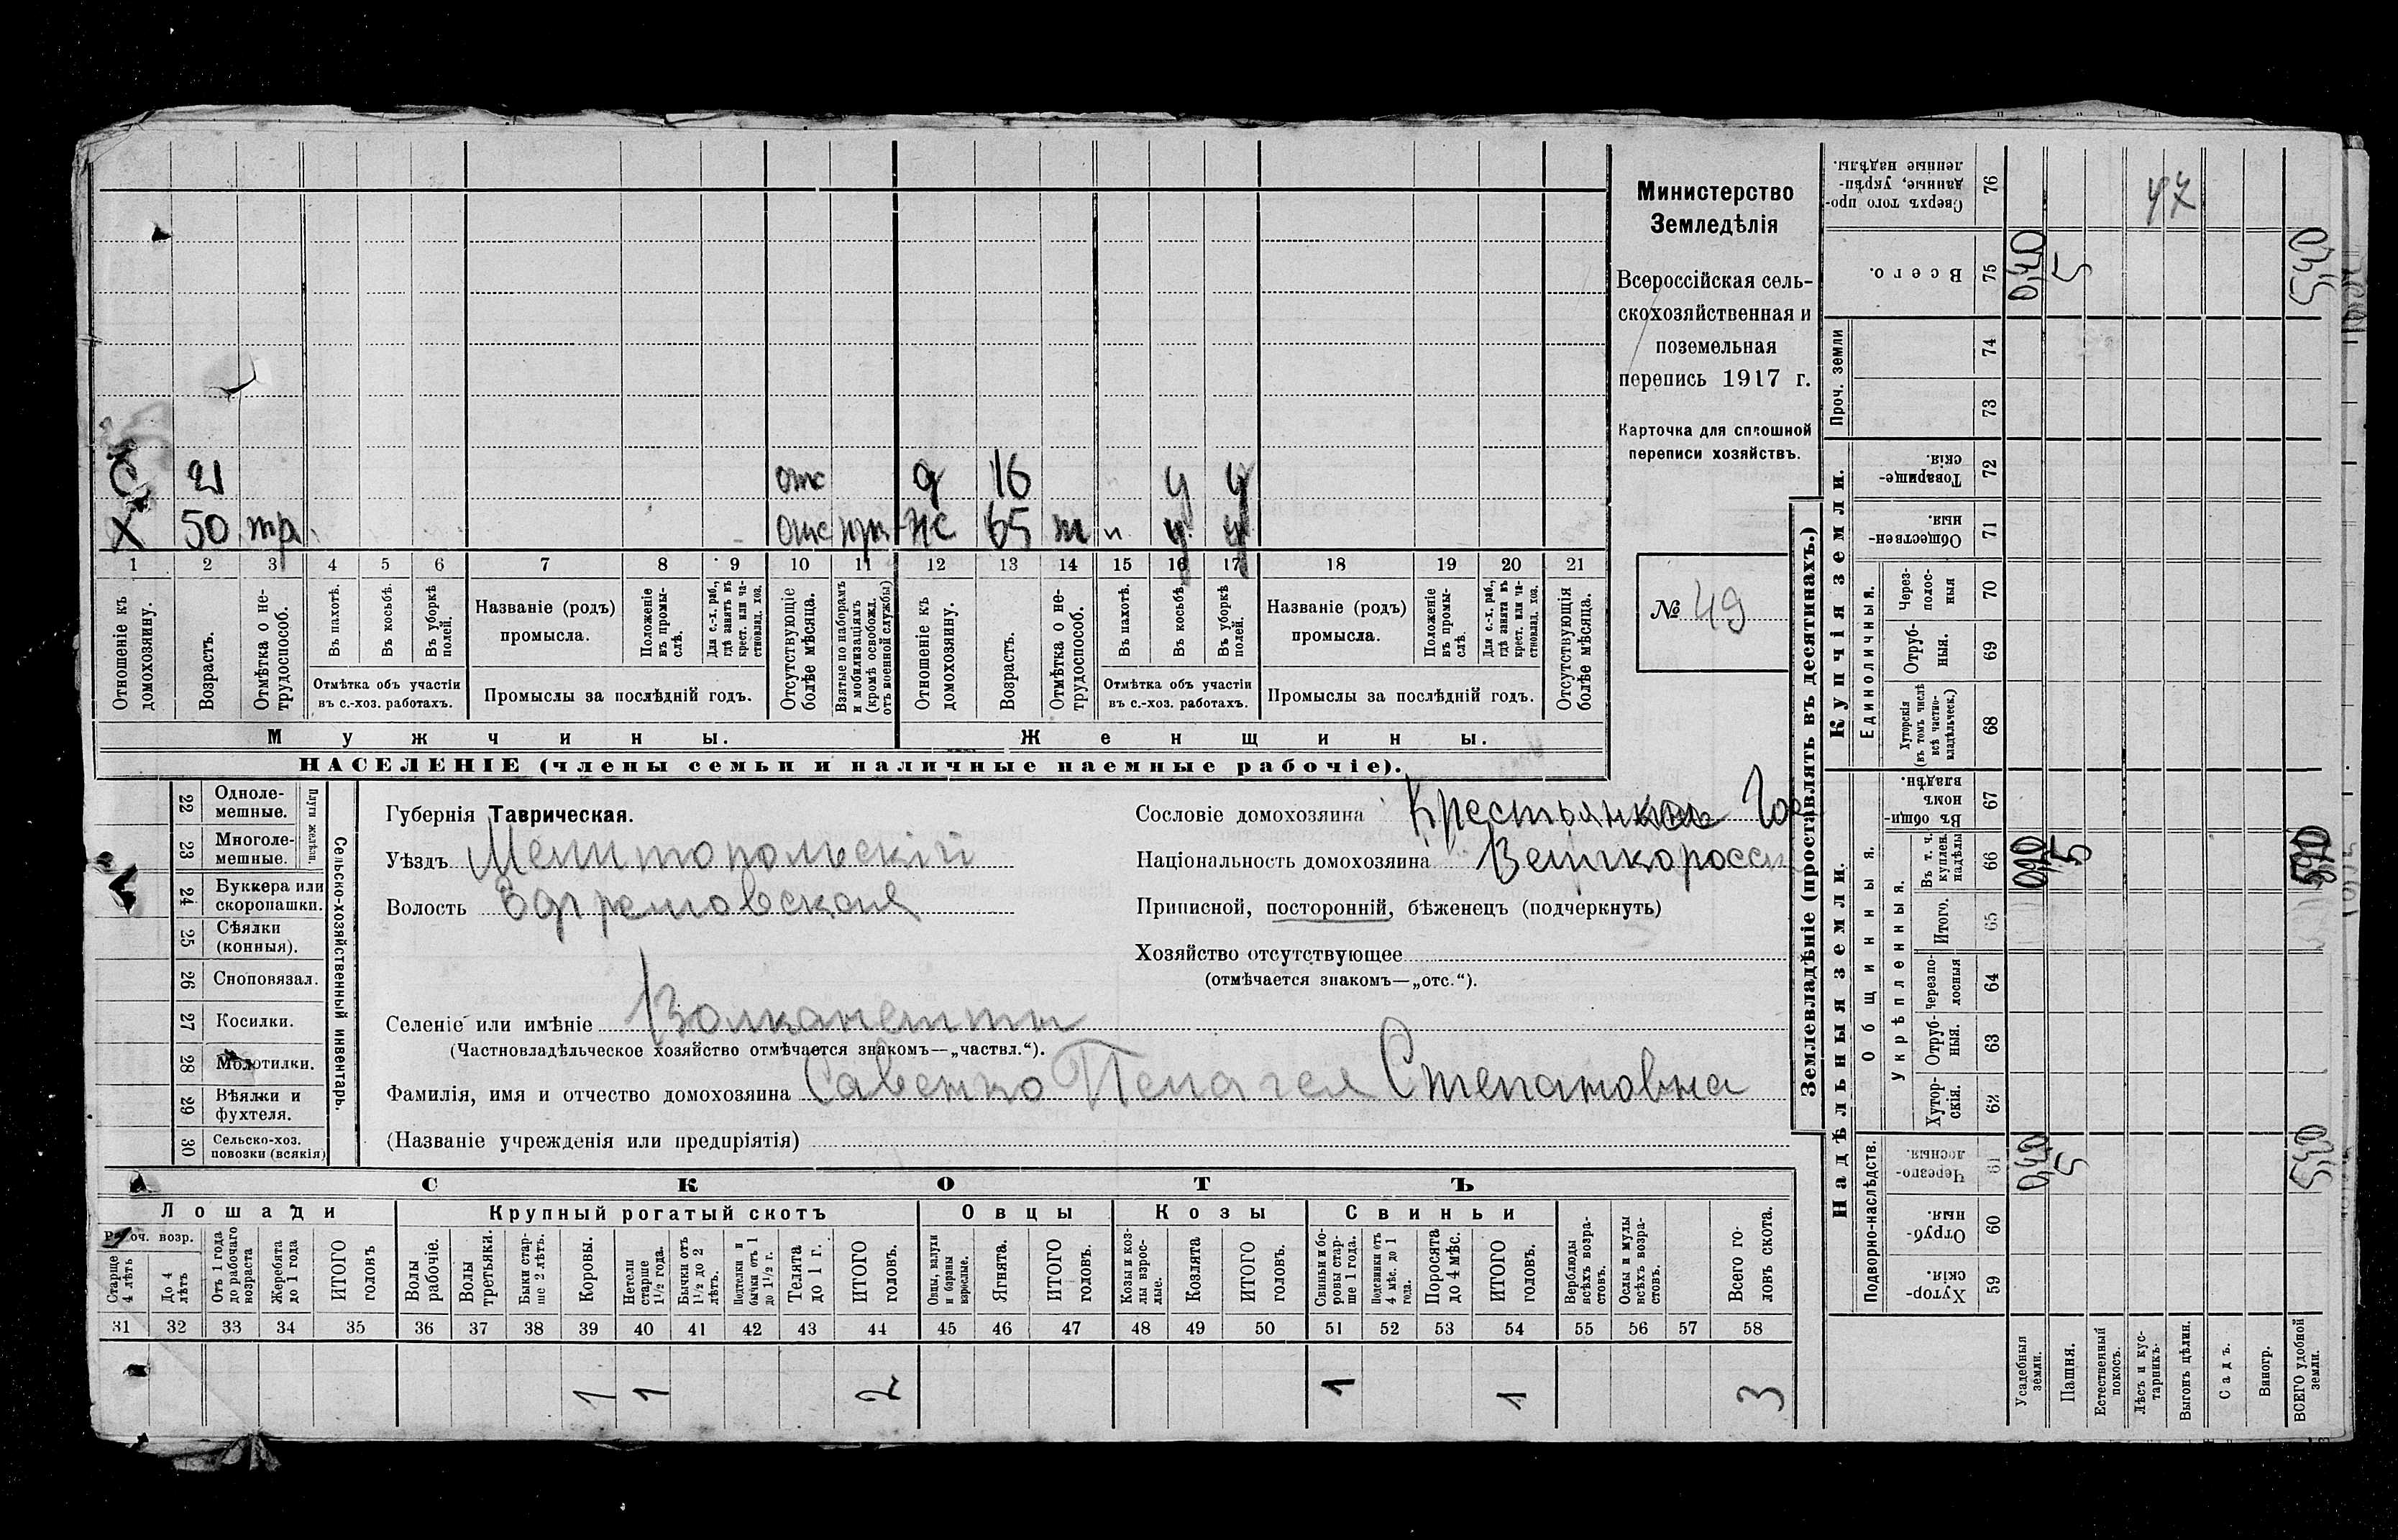 Министерство
Земледѣлія
Всероссійская сель-
скохозяйственная и
поземельная
перепись 1917 г.
Карточка для сплошной
переписи хозяйствъ.
№ 49
С 21 отс д 16 у у
Х 50 отс ж 65 н у у
1 2 3 4 5 6 7 8 9 10 11 12 13 14 15 16 17 18 19 20 21
Отношеніе къ домохозяину.
Возрастъ.
Отмѣтка о не-трудоспособ.
Въ пахотѣ.
Въ косьбѣ.
Въ уборкѣ полей.
Отмѣтка объ участіи
въ с.-хоз. работахъ.
Названіе (родъ)
промысла.
Положеніе въ промы-слѣ.
Для с.-х. раб., гдѣ занятъ въ крест. или ча-стновлад. хоз.
Промыслы за послѣдній годъ.
Отсутствующіе болѣе мѣсяца.
Взятые по наборамъ и мобилизаціямъ (кромѣ освобожд. отъ военной службы)
Отношеніе къ домохозяину.
Возрастъ.
Отмѣтка о не-трудоспособ.
Въ пахотѣ.
Въ косьбѣ.
Въ уборкѣ полей.
Отмѣтка объ участіи
въ с.-хоз. работахъ.
Названіе (родъ)
промысла.
Положеніе въ промы-слѣ.
Для с.-х. раб., гдѣ занята въ крест. или ча-стновлад. хоз.
Промыслы за послѣдній годъ.
Отсутствующія болѣе мѣсяца.
Мужчины.
Женщины.
НАСЕЛЕНІЕ (члены семьи и наличные наемные рабочіе).
22 Одноле-мешные.
23 Многоле-мешные.
Плуги желѣзн.
24 Буккера или скоропашки.
25 Сѣялки (конныя).
26 Сноповязал.
27 Косилки.
28 Молотилки.
29 Вѣялки и фухтеля.
30 Сельско-хоз. повозки (всякія)
Сельско-хозяйственный инвентарь.
Губернія Таврическая.
Уѣздъ Мелитопольскій
Волость Ефремовская
Сословіе домохозяина
Національность домохозяина Великоросс
Приписной, посторонній, бѣженецъ (подчеркнуть)
Хозяйство отсутствующее
(отмѣчается знакомъ—„отс.“).
Селеніе или имѣніе Волканешты
(Частновладѣльческое хозяйство отмѣчается знакомъ—„частвл.“).
Фамилія, имя и отчество домохозяина Савенко Пелагея Степановна
(Названіе учрежденія или предпріятія)
СКОТЪ
Лошади
Рабоч. возр.
Старше 4 лѣтъ
До 4 лѣтъ
Отъ 1 года до рабочаго возраста
Жеребята до 1 года
ИТОГО головъ
Крупный рогатый скотъ
Волы рабочіе.
Волы третьяки.
Быки стар-ше 2 лѣтъ.
Коровы.
Нетели старше 1½ года.
Бычки отъ 1½ до 2 лѣтъ.
Подтелки и бычки отъ 1 до 1½ г.
Телята до 1 г.
ИТОГО головъ.
Овцы
Овцы, валухи и бараны взрослые.
Ягнята.
ИТОГО головъ.
Козы
Козы и коз-лы взрос-лые.
Козлята
ИТОГО головъ.
Свиньи
Свиньи и бо-ровы стар-ше 1 года.
Подсвинки отъ 4 мѣс. до 1 года.
Поросята до 4 мѣс.
ИТОГО головъ.
Верблюды всѣхъ возра-стовъ.
Ослы и мулы всѣхъ возра-стовъ.
Всего го-ловъ скота.
31 32 33 34 35 36 37 38 39 40 41 42 43 44 45 46 47 48 49 50 51 52 53 54 55 56 57 58
1 1 2 1 1 3
Землевладѣніе (проставлять въ десятинахъ.)
Надѣльныя земли.
Купчія земли.
Проч. земли
Подворно-наслѣдств.
Общинныя.
Укрѣпленныя.
Единоличныя.
Хутор-скія. 59
Отруб-ныя. 60
Черезпо-лосныя. 61
Хутор-скія. 62
Отруб-ныя. 63
Черезпо-лосныя 64
Итого. 65
Въ т. ч. куплен. надѣлы 66
Въ общи-номъ владѣн. 67
Хуторскія (въ томъ числѣ всѣ частно-владѣльческ.) 68
Отруб-ныя. 69
Через-полос-ныя 70
Обществен-ныя. 71
Товарище-скія. 72
73
74
Всего. 75
Сверхъ того про-данные, укрѣп-ленные надѣлы. 76
Усадебныя земли. 0,40 0,40
Пашня. 5 5 5
Естественный покосъ.
Лѣсъ и кус-тарникъ.
Выгонъ цѣлин.
Садъ.
Виногр.
ВСЕГО удобной земли. 5,40 5,40
47